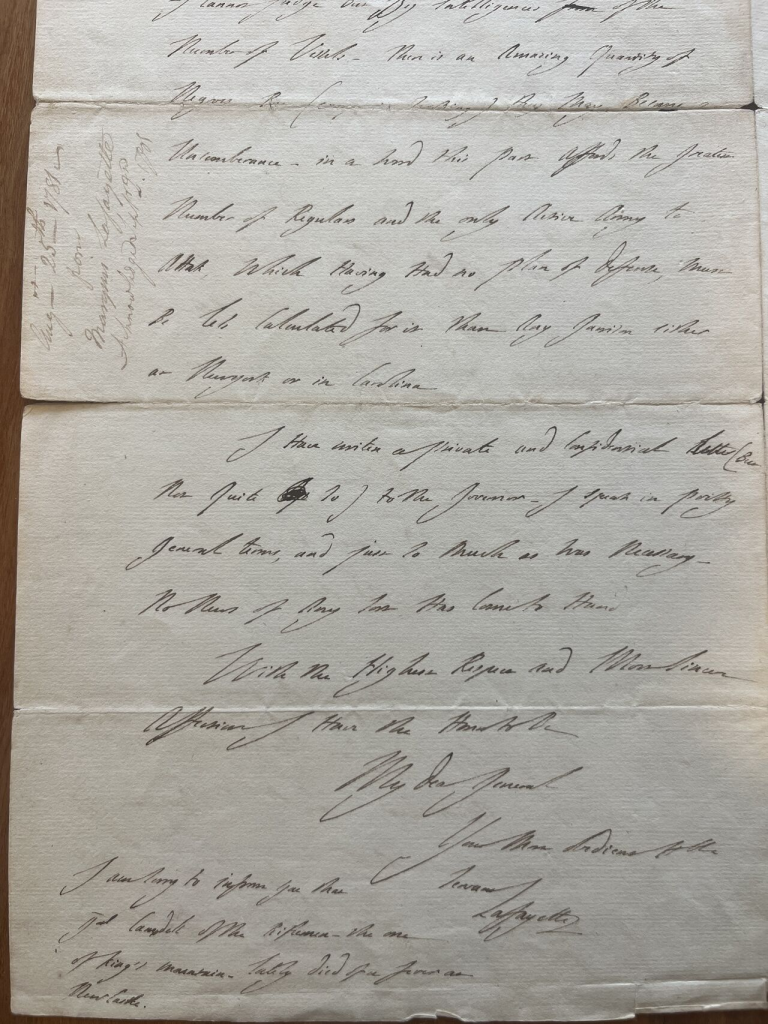 I Cannot judge But By Intelligence from of the
Number of Vessels – there is an Amazing Quantity of
Negroes
Uncumbrance – in a word this part affords the greater
Number of Regulars and the only Active Army to
Attak, Which Having Had no plan of defense, Must
Be less Calculated for it than Any garrison either
at Newyork or in Carolina
I Have writen a private and Confidential Letter (But
Not Quite So) to the Governor – I speak in pretty
general terms, and just so Much as was Necessary –
No News of Any sort Has Come to Hand
With the Highest Respect and Most Sincere
Affection I Have the Honor to Be
My dear General
Your Most Obedient Hble
Servant
Lafayette
I am sorry to inform you that
Col Campbell of the Riflemen – the one
of King's mountain – lately died of a fever at
New Castle.
Aug – 25th – 1781
from
Marquis Lafayette